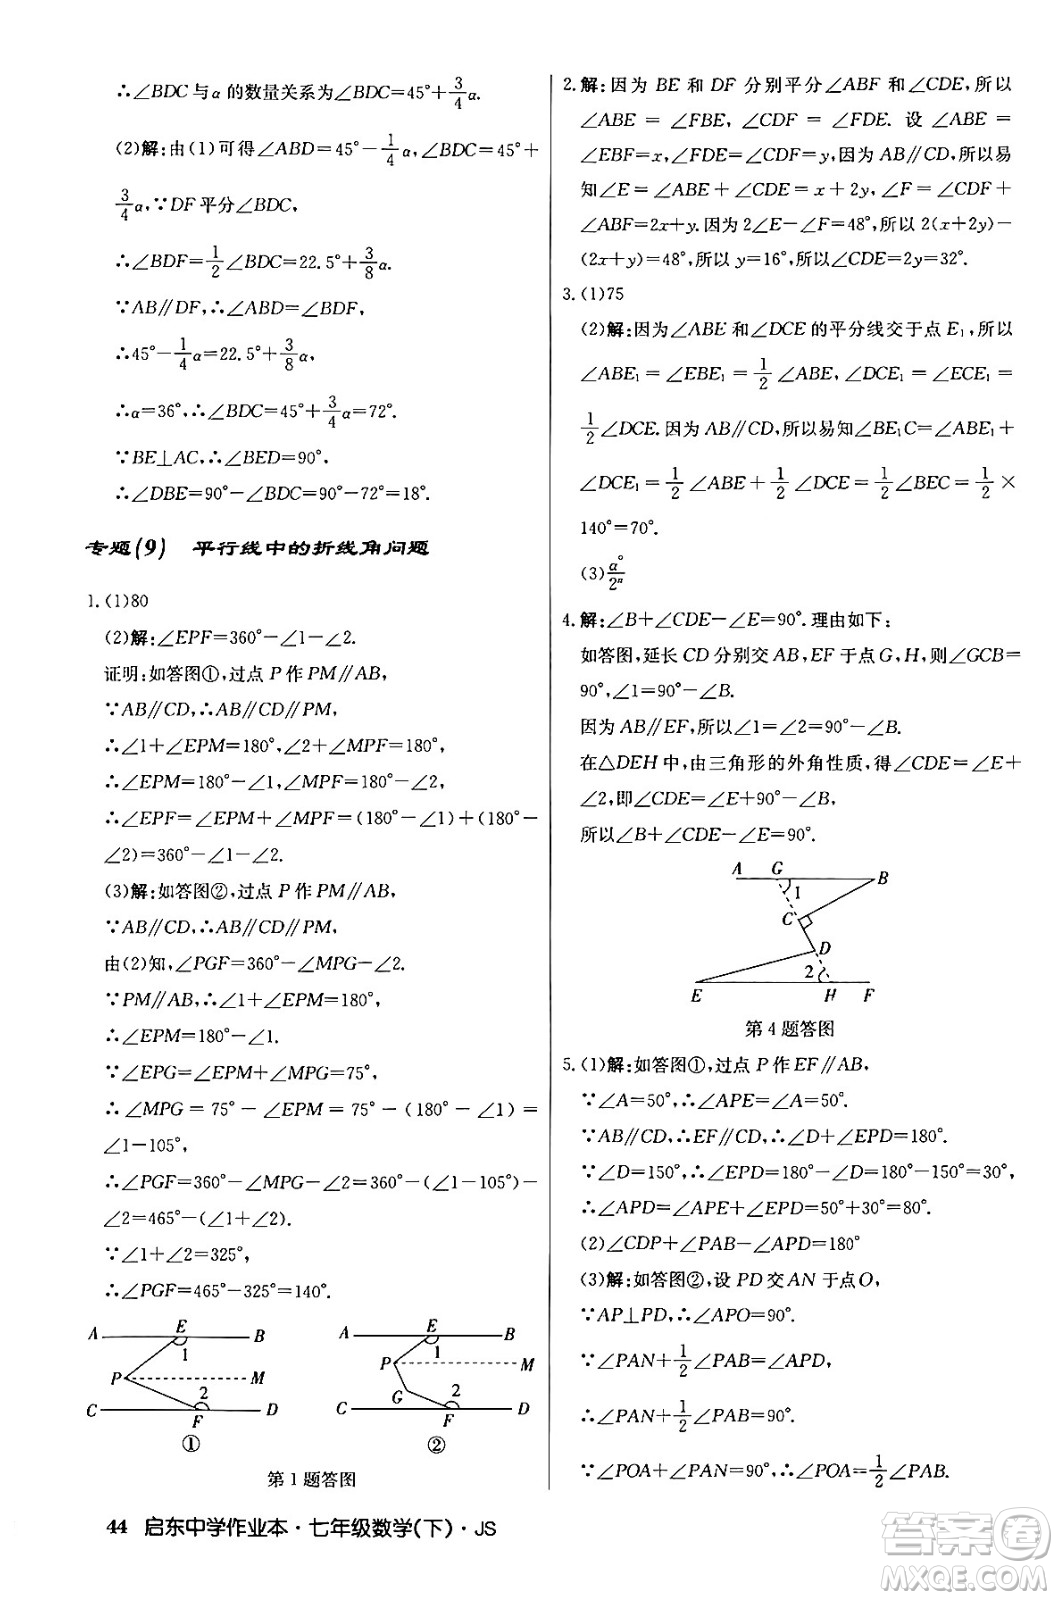 ∴∠BDC与α的数量关系为∠BDC=45°+3/4α.
(2)解:由(1)可得∠ABD=45°-1/4α,∠BDC=45°+
3/4α,∵DF平分∠BDC,
∴∠BDF=1/2∠BDC=22.5°+3/8α.
∵AB∥DF,∴∠ABD=∠BDF,
∴45°-1/4α=22.5°+3/8α,
∴α=36°,∴∠BDC=45°+3/4α=72°.
∵BE⊥AC,∴∠BED=90°.
∴∠DBE=90°-∠BDC=90°-72°=18°.
专题(9) 平行线中的折线角问题
1.(1)80
(2)解:∠EPF=360°-∠1-∠2.
证明:如答图①,过点P作PM∥AB,
∵AB∥CD,∴AB∥CD∥PM,
∴∠1+∠EPM=180°,∠2+∠MPF=180°,
∴∠EPM=180°-∠1,∠MPF=180°-∠2,
∴∠EPF=∠EPM+∠MPF=(180°-∠1)+(180°-
∠2)=360°-∠1-∠2.
(3)解:如答图②,过点P作PM∥AB,
∵AB∥CD,∴AB∥CD∥PM,
由(2)知,∠PGF=360°-∠MPG-∠2.
∵PM∥AB,∴∠1+∠EPM=180°,
∴∠EPM=180°-∠1.
∵∠EPG=∠EPM+∠MPG=75°,
∴∠MPG=75°-∠EPM=75°-(180°-∠1)=
∠1-105°,
∴∠PGF=360°-∠MPG-∠2=360°-(∠1-105°)-
∠2=465°-(∠1+∠2).
∵∠1+∠2=325°,
∴∠PGF=465°-325°=140°.
A E B
1
P M
2
C F D
①
A E B
1
P M
G 2
C F D
②
第1题答图
2.解:因为BE和DF分别平分∠ABF和∠CDE,所以
∠ABE=∠FBE,∠CDF=∠FDE.设∠ABE=
∠EBF=x,∠FDE=∠CDF=y,因为AB∥CD,所以易
知∠E=∠ABE+∠CDE=x+2y,∠F=∠CDF+
∠ABF=2x+y.因为2∠E-∠F=48°,所以2(x+2y)-
(2x+y)=48°,所以y=16°,所以∠CDE=2y=32°.
3.(1)75
(2)解:因为∠ABE和∠DCE的平分线交于点E₁,所以
∠ABE₁=∠EBE₁=1/2∠ABE,∠DCE₁=∠ECE₁=
1/2∠DCE.因为AB∥CD,所以易知∠BE₁C=∠ABE₁+
∠DCE₁=1/2∠ABE+1/2∠DCE=1/2∠BEC=1/2×
140°=70°.
(3)α°/2ⁿ
4.解:∠B+∠CDE-∠E=90°.理由如下:
如答图,延长CD分别交AB,EF于点G,H,则∠GCB=
90°,∠1=90°-∠B.
因为AB∥EF,所以∠1=∠2=90°-∠B.
在△DEH中,由三角形的外角性质,得∠CDE=∠E+
∠2,即∠CDE=∠E+90°-∠B,
所以∠B+∠CDE-∠E=90°.
A G B
1
C
D
2
E H F
第4题答图
5.(1)解:如答图①,过点P作EF∥AB,
∵∠A=50°,∴∠APE=∠A=50°.
∵AB∥CD,∴EF∥CD,∴∠D+∠EPD=180°.
∵∠D=150°,∴∠EPD=180°-∠D=180°-150°=30°,
∴∠APD=∠APE+∠EPD=50°+30°=80°.
(2)∠CDP+∠PAB-∠APD=180°
(3)解:如答图②,设PD交AN于点O,
∵AP⊥PD,∴∠APO=90°.
∵∠PAN+1/2∠PAB=∠APD,
∴∠PAN+1/2∠PAB=90°.
∵∠POA+∠PAN=90°,∴∠POA=1/2∠PAB.
44 启东中学作业本·七年级数学(下)·JS
答案圈
MXQE.COM